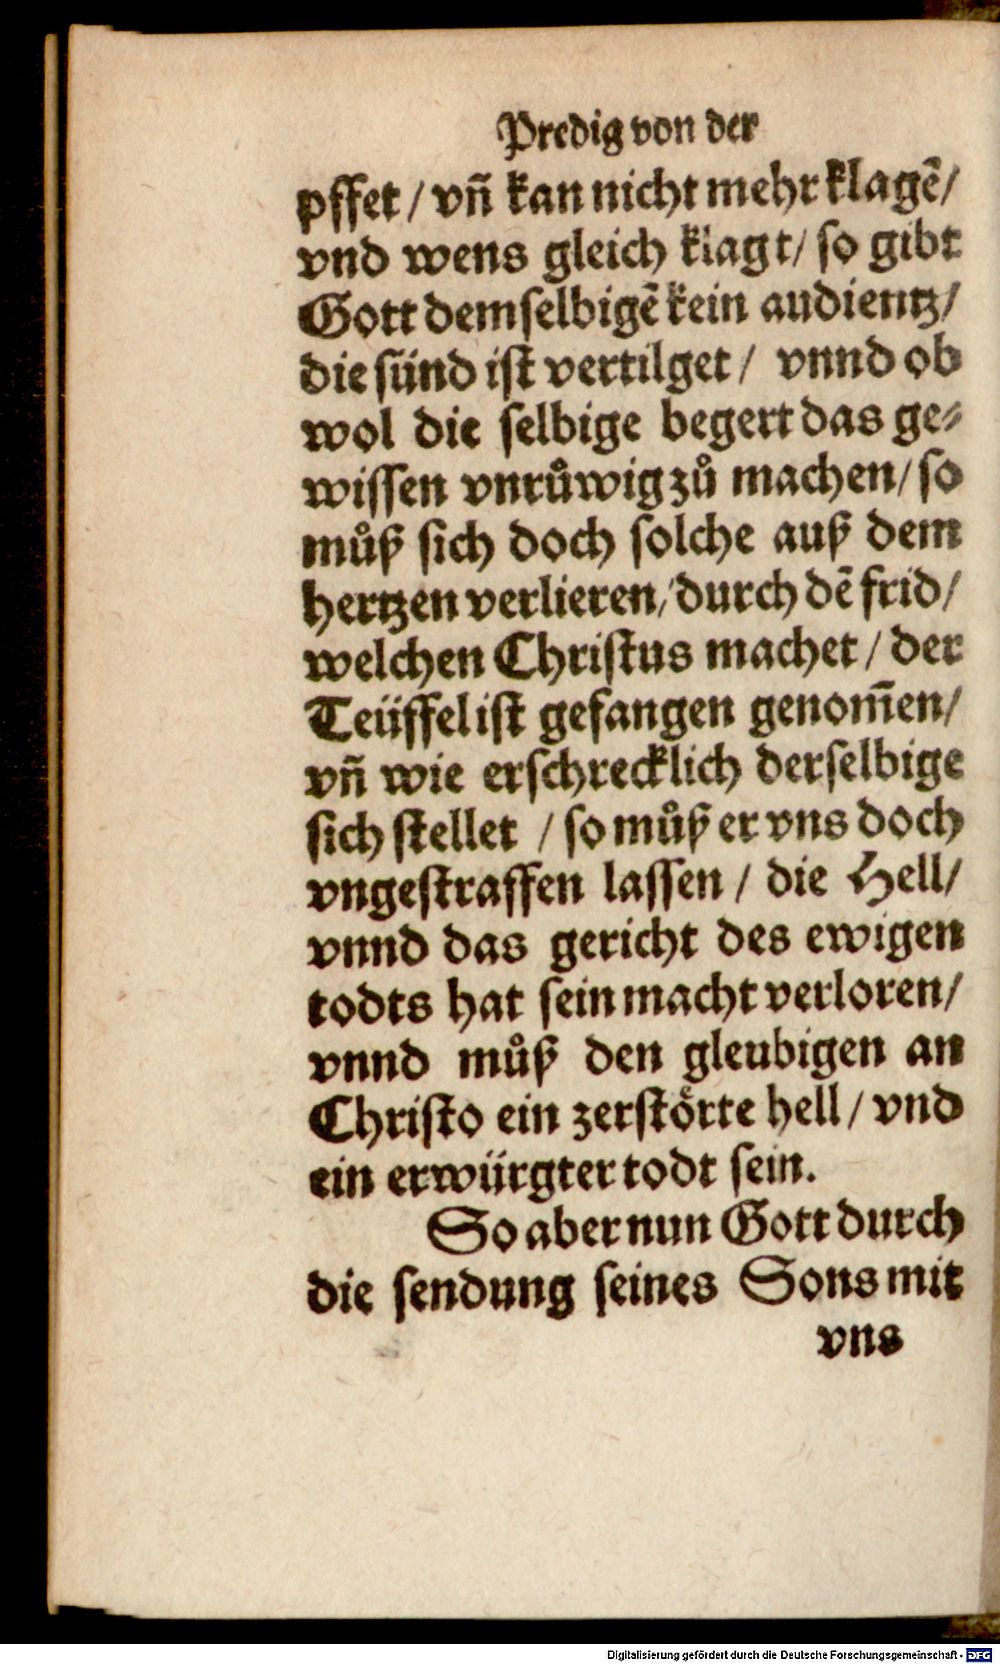 Predig von der
pffet / vñ kan nicht mehr klagẽ/
vnd wens gleich klagt/ so gibt
Gott demselbigẽ kein audientz/
die sünd ist vertilget / vnnd ob
wol die selbige begert das ge⸗
wissen vnrůwig zů machen/ so
můß sich doch solche auß dem
hertzen verlieren/ durch dẽ frid/
welchen Christus machet / der
Teüffel ist gefangen genom̃en/
vñ wie erschrecklich derselbige
sich stellet / so můß er vns doch
vngestraffen lassen / die Hell/
vnnd das gericht des ewigen
todts hat sein macht verloren/
vnnd můß den gleubigen an
Christo ein zerstörte hell / vnd
ein erwürgter todt sein.
So aber nun Gott durch
die sendung seines Sons mit
vns
Digitalisierung gefördert durch die Deutsche Forschungsgemeinschaft - DFG